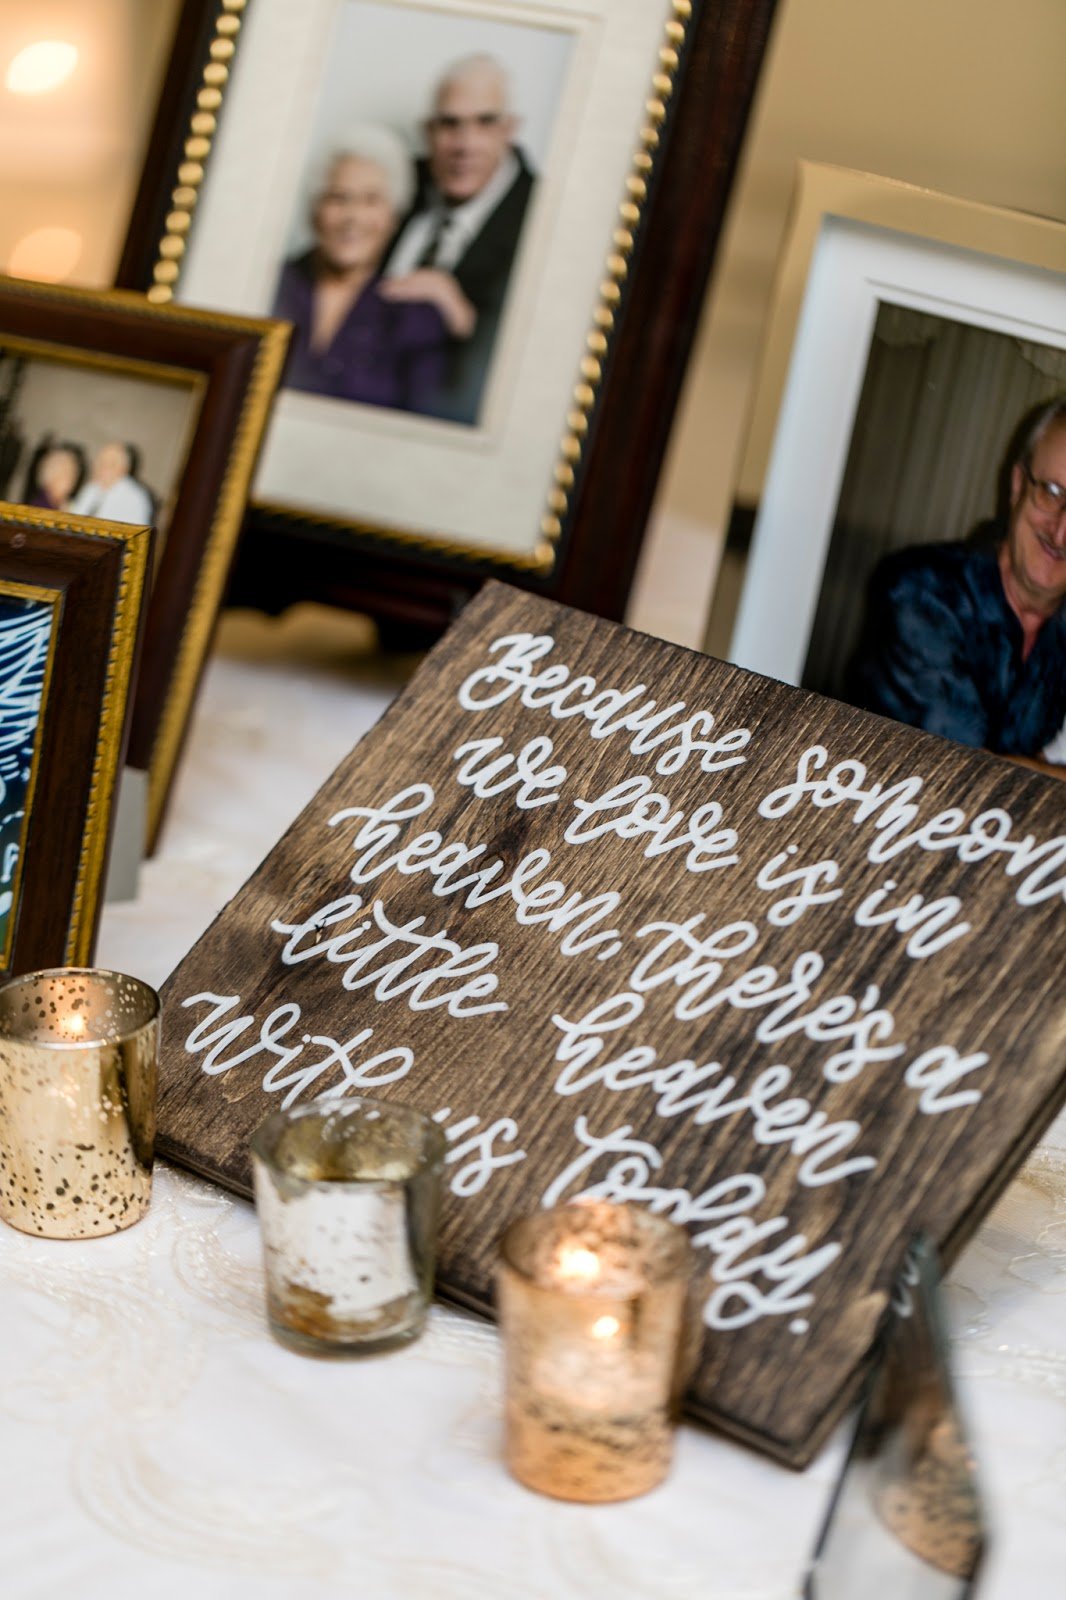 Because someone
we love is in
heaven, there's a
little heaven
with us today.